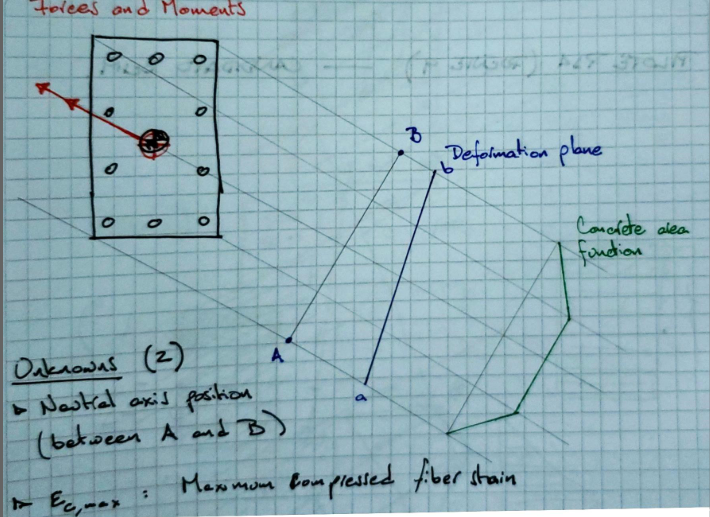 Forces and Moments
B
b Deformation plane
Concrete area
function
A
a
Unknowns (2)
Neutral axis position
(between A and B)
Ec,max : Maximum compressed fiber strain